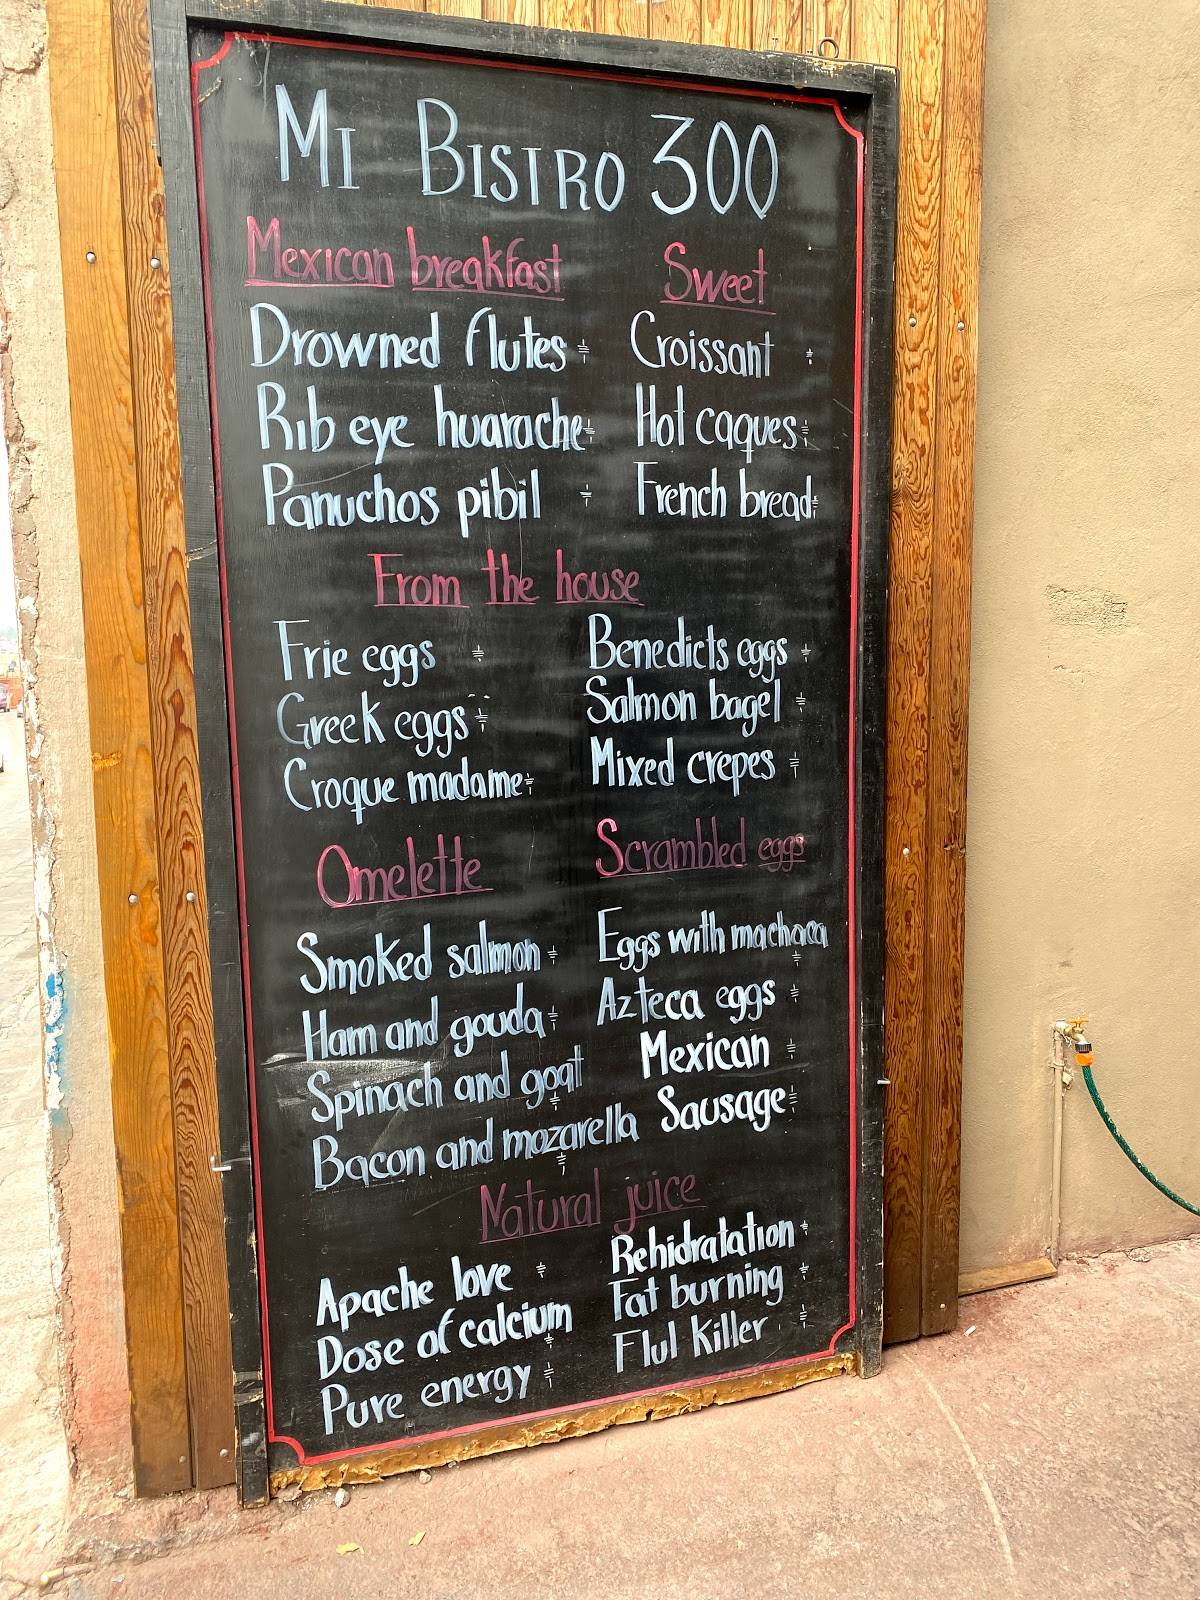 MI BISTRO 300
Mexican breakfast
Drowned flutes
Rib eye huarache
Panuchos pibil
Sweet
Croissant
Hot caques
French bread
From the house
Frie eggs
Greek eggs
Croque madame
Benedicts eggs
Salmon bagel
Mixed crepes
Omelette
Smoked salmon
Ham and gouda
Spinach and goat
Bacon and mozarella
Scrambled eggs
Eggs with machaca
Azteca eggs
Mexican
Sausage
Natural juice
Apache love
Dose of calcium
Pure energy
Rehidratation
Fat burning
Flul killer